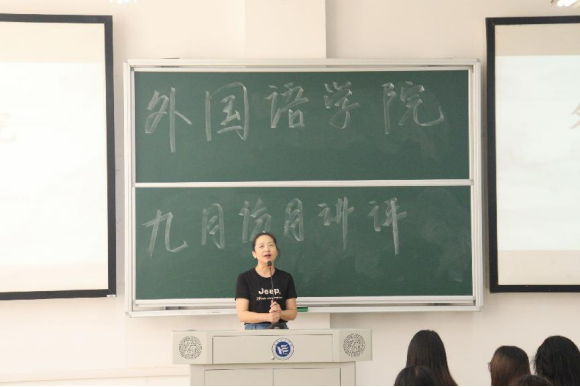 外国语学院
九月份月讲评
Jeep.